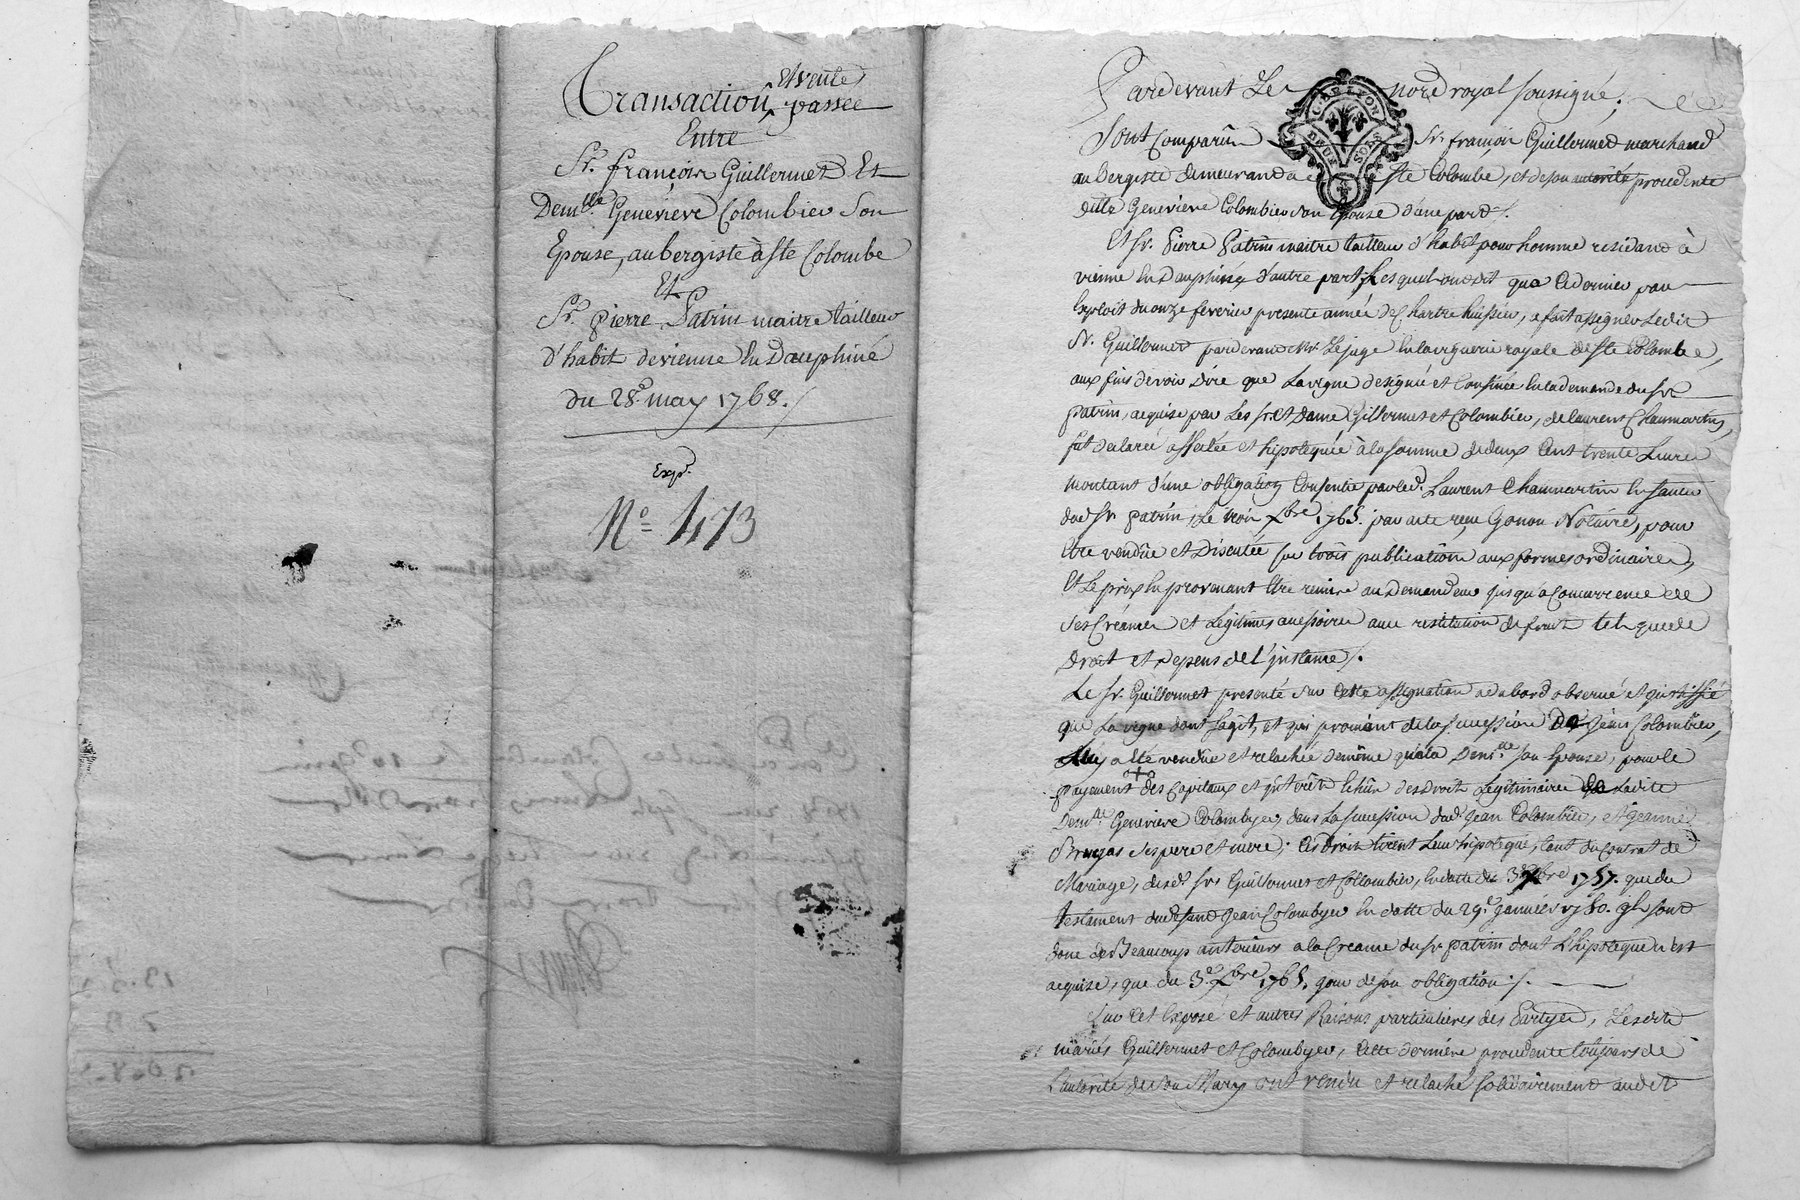 et vente
Transaction, passée
Entre
Sr. françois Guillermet Et
Demlle. Geneviève Colombier Son
Epouse, aubergiste à Ste Colombe
Et
Sr. pierre Patrin maitre tailleur
d'habit de vienne En Dauphiné
du 28e. may 1768./
Expn.
No. 473
Pardevant Le nore royal soussigné,
G. DE LYON
DEUX SOLS
Sont Comparûs Sr. françois Guillermet marchand
aubergiste demeurand a Ste Colombe, et de son autorité procedente
dlle Geneviève Colombier son Epouse d'une part /.
Et Sr. Pierre Patrin maitre tailleur d'habit pour homme residand à
vienne En Dauphiné d'autre part, Lesquels ont dit que Ce dernier par
Exploit du onze fevrier presente année de Chartre huissier, a fait assigner Ledit
Sr. Guillermet pardevand Mr. Le juge En la viguerie royale de Ste Colombe,
aux fins de voir Dire que La vigne designée et Confinée En la demande du Sr.
patrin, acquise par Les Sr. et Dame Guillermet et Colombier, de laurent Chaumartin,
fut declarée affectée et hipotequée à la somme de deux Cent trente Livres
montant d'une obligation Consentie par led. Laurent Chaumartin En faveur
dud Sr. patrin, Le trois Xbre 1765. par acte reçu Gonon Notaire, pour
Etre vendüe et Discutée sur trois publications aux formes ordinaires,
Et Le prix En provenant Etre remis au Demandeur jusqu'à Concurrence de
Ses Créances et Légitimes accessoires avec restitution de fruits tels que de
Droit et depens de L'jnstance /.
Le Sr. Guillermet presenté sur Cette assignation a d'abord observé et justiffié
que La vigne dont s'agit, et qui provient de la succession De jean Colombier,
a Eté vendüe et relachée de même qu'a la Demlle. Son Epouse, pour le
payement des Capitaux et jnterêts Echûs des Droits Légitimaires de Ladite
Demlle. Geneviève Colombyer, dans La succession dud. jean Colombier, et jeanne
Ses pere et mere; Ces droits tirent Leur hipoteque, tant du Contrat de
Mariage, desd. Srs Guillermet et Collombier, En date du 3 Xbre 1757. que du
testament dud defund jean Colombyer En datte du 29e. janvier 1760. jls sont
donc de Beaucoup anterieurs a la Creance du Sr. patrin dont L'hipoteque n'est
acquise, que du 3e. Xbre 1765. jour de son obligation /.
Sur Cet Exposé et autres Raisons particulieres des Partyes, Lesdits
mariés Guillermet et Colombyer, Cette derniere procedente toujours de
L'autorité de Son Mary ont vendu et relaché solidairement audit